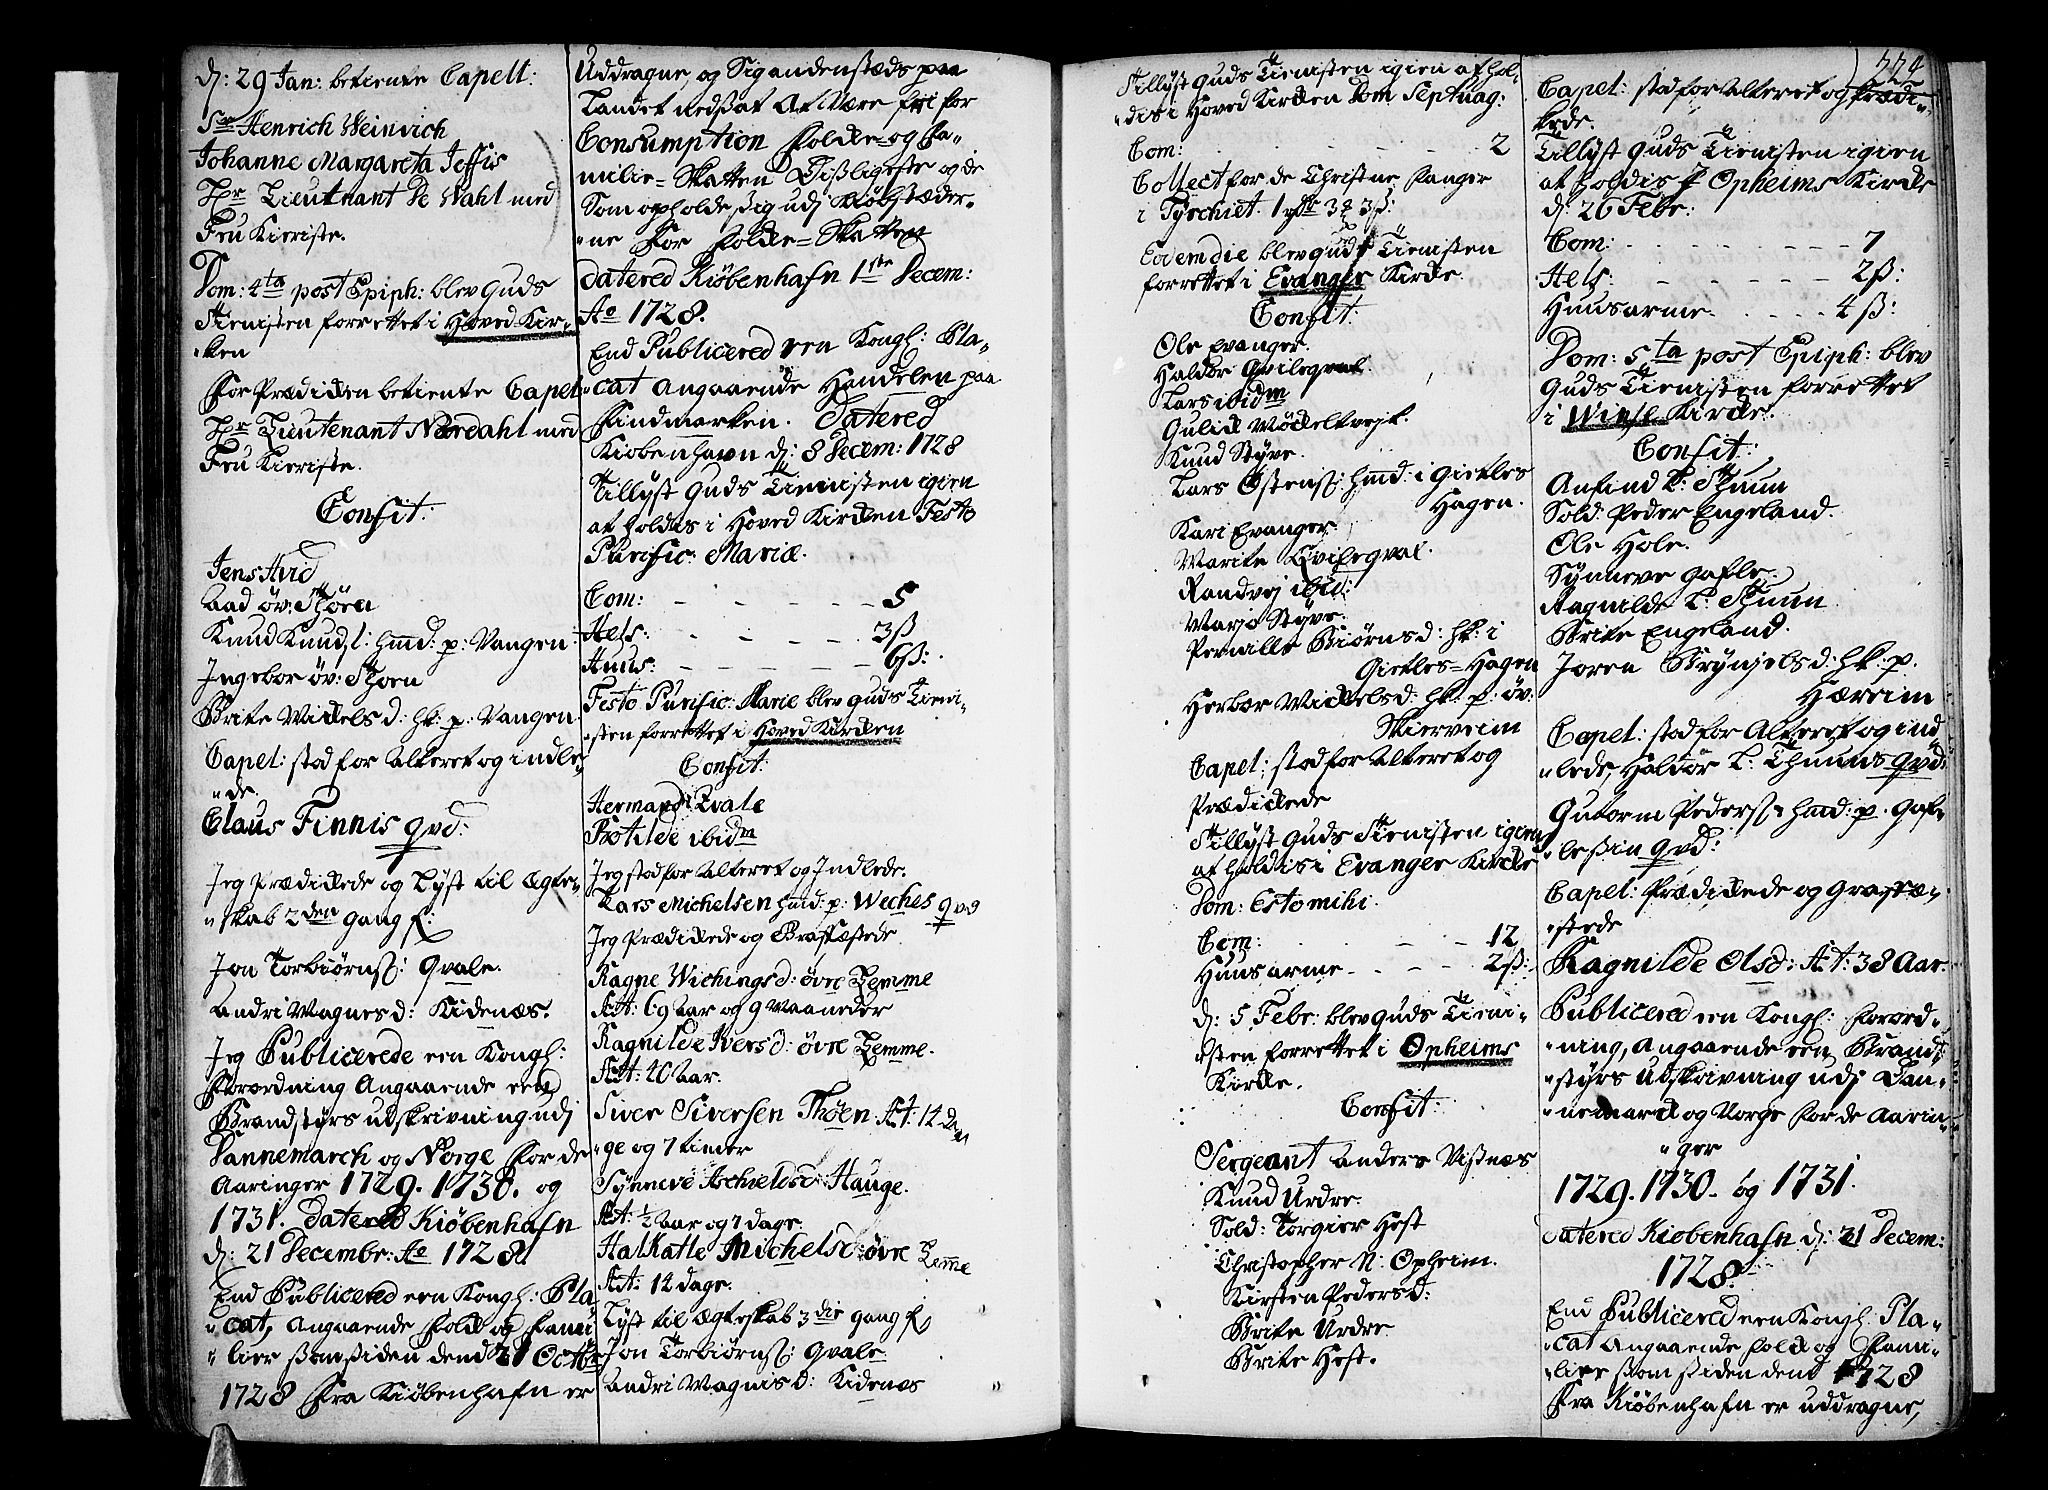 d: 29 Jan: betiente Capell:
Sr Henrich Weinvich
Johanne Margareta Jessis
Hr Lieutnant De Wahl med
Fru Kieriste.
Dom: 4ta post Epiph: blev Guds
Tienisten forrettet i Hoved Kir-
ken
For Prædicken betiente Capel
Hr Lieutenant Nordahl med
Fru Kieriste.
Confit:
Jens Hvid
Aad öv: Skören
Knud Knuds: hmd: p: Vangen
Ingebor öv: Skoren
Brite Wickels d: hk: p: Vangen
Capel: stod for Alteret og indle-
de.
Claus Finnis qvd:
Jeg Prædickede og Lyst til Ægte-
skab 2den gang f:
Jon Torbiörns: Qvale.
Andri Magnes d: Kidenæs.
Jeg Publicerede een Kongl:
Forordning Angaaende een
Brandstyrs udskrivning udj
Dannemarch og Norge for de
Aaringer 1729. 1730. og
1731. datered Kiöbenhafn
d: 21 Decembr: Ao 1728.
End Publicered een Kongl: Pla-
cat, Angaaende folck og fami-
lier som siden dend 21 Octbr
1728 fra Kiöbenhafn er
Uddragne, og Sig andenstæds paa
Landet nedsat At Være fri for
Consumption Folcke- og Fa-
milie-Skatten Disligeste og de
Som opholde sig udj Kiöbstæder-
ne for Folcke-Skatten
datered Kiöbenhafn 1ste Decem:
Ao 1728.
End Publicered een Kongl: Pla-
cat Angaaende Handelen paa
Findmarken. Datered
Kiobenhavn d: 8 Decem: 1728
Tillyst Guds Tienisten igien
at holdis i Hoved Kircken Festo
Purific: Mariæ.
Com: - - - - - 5
Hels: - - - - 3ß
Huus: - - - - - 6ß:
Festo Purific: Marie blev Guds Tieni-
sten forrettet i Hoved Kircken
Confit:
Hermand Qvale
Botilde ibidm
Jeg stod for Alteret og Indlede.
Lars Michelsen hmd: p: Weches qvd
Jeg Prædickede og Graffæstede
Ragne Wichings d: övre Lemme
Æt: 69 Aar og 9 Maaneder
Ragnilde Ivers d: övre Lemme.
Æt: 40 Aar.
Siver Siversen Thöen. Æt. 14 Da-
ge og 7 timer
Synneve Achields d: Hauge.
Æt: ½ Aar og 7 dage.
HalKatle Michelsd: övre Lemme
Æt: 14 dage.
Lyst til Ægteskab 3die gang f
Jon Torbiörns: Qvale
Andri Magnis d: Kidenæs
Tillyst Guds Tienisten igien at hol-
dis i Hoved Kircken Dom Septuag:
Com: - - - - - 2
Collect for de Christne fanger
i Tyrchiet. 1 rdr 3 ߝ 3ß:
Eodem die blev Guds Tienisten
forrettet i Evanger Kircke.
Confit:
Ole Evanger.
Haldor Qvilegval
Lars ibidm
Knud Styve.
Lars Östens: hmd: i Gietles
Hagen.
Kari Evanger.
Marite Qvilegval.
Randvej ibid:
Marjo Styve.
Pernille Biörns d: hk: i
Gietles-Hagen
Herbor Wickels d: hk: p: öv:
Skierveim
Capel: stod for Alteret og
Prædickede
Tillyst Guds Tienisten igien
at holdis i Evanger Kircke
Dom: Esto mihi.
Com: - - - 12
Huusarme - - - 2ß:
d: 5 Febr: blev Guds Tieni-
sten forrettet i Opheims
Kircke.
Confit:
Sergeant Anders Visnæs
Knud Urdre.
Sold: Torgier Hest
Christopher N: Opheim.
Kirsten Peders d:
Brite Urdre
Brite Hest.
224
Capel: stod for Alteret og Prædi-
kede.
Tillyst Guds Tienisten igien
at holdis i Opheims Kircke
d: 26 Febr:
Com: - - - - - - 7
Hels: - - - - - 2ß:
Huusarme - - - - 4ß:
Dom: 5ta post Epiph: blev
Guds Tienisten forrettet
i Winje Kircke.
Confit:
Anfind L: Thuun
Sold: Peder Engeland.
Ole Hole.
Synneve Gafle.
Ragnilde L: Thuun
Brite Engeland.
Joren Brynjels d: hk: p.
Hæreim
Capel: stod for Alteret og ind-
lede, Haldor L: Thuuns qvd:
Gutorm Peders: hmd: p. Gaf-
lesin qvd:
Capel: Prædickede og Graffæ-
stede
Ragnilde Olsd: Æt: 38 Aar.
Publicered een Kongl: Forord-
ning, Angaaende een Brand-
styrs Udskrivning udj Dan-
nemarck og Norge for de Aarin-
ger
1729. 1730. og 1731.
datered Kiobenhafn d: 21 Decem:
1728.
End Publicered een Kongl: Pla-
cat Angaaende folck og Fami-
lier som siden dend 1728
Fra Kiöbenhafn er uddragne,